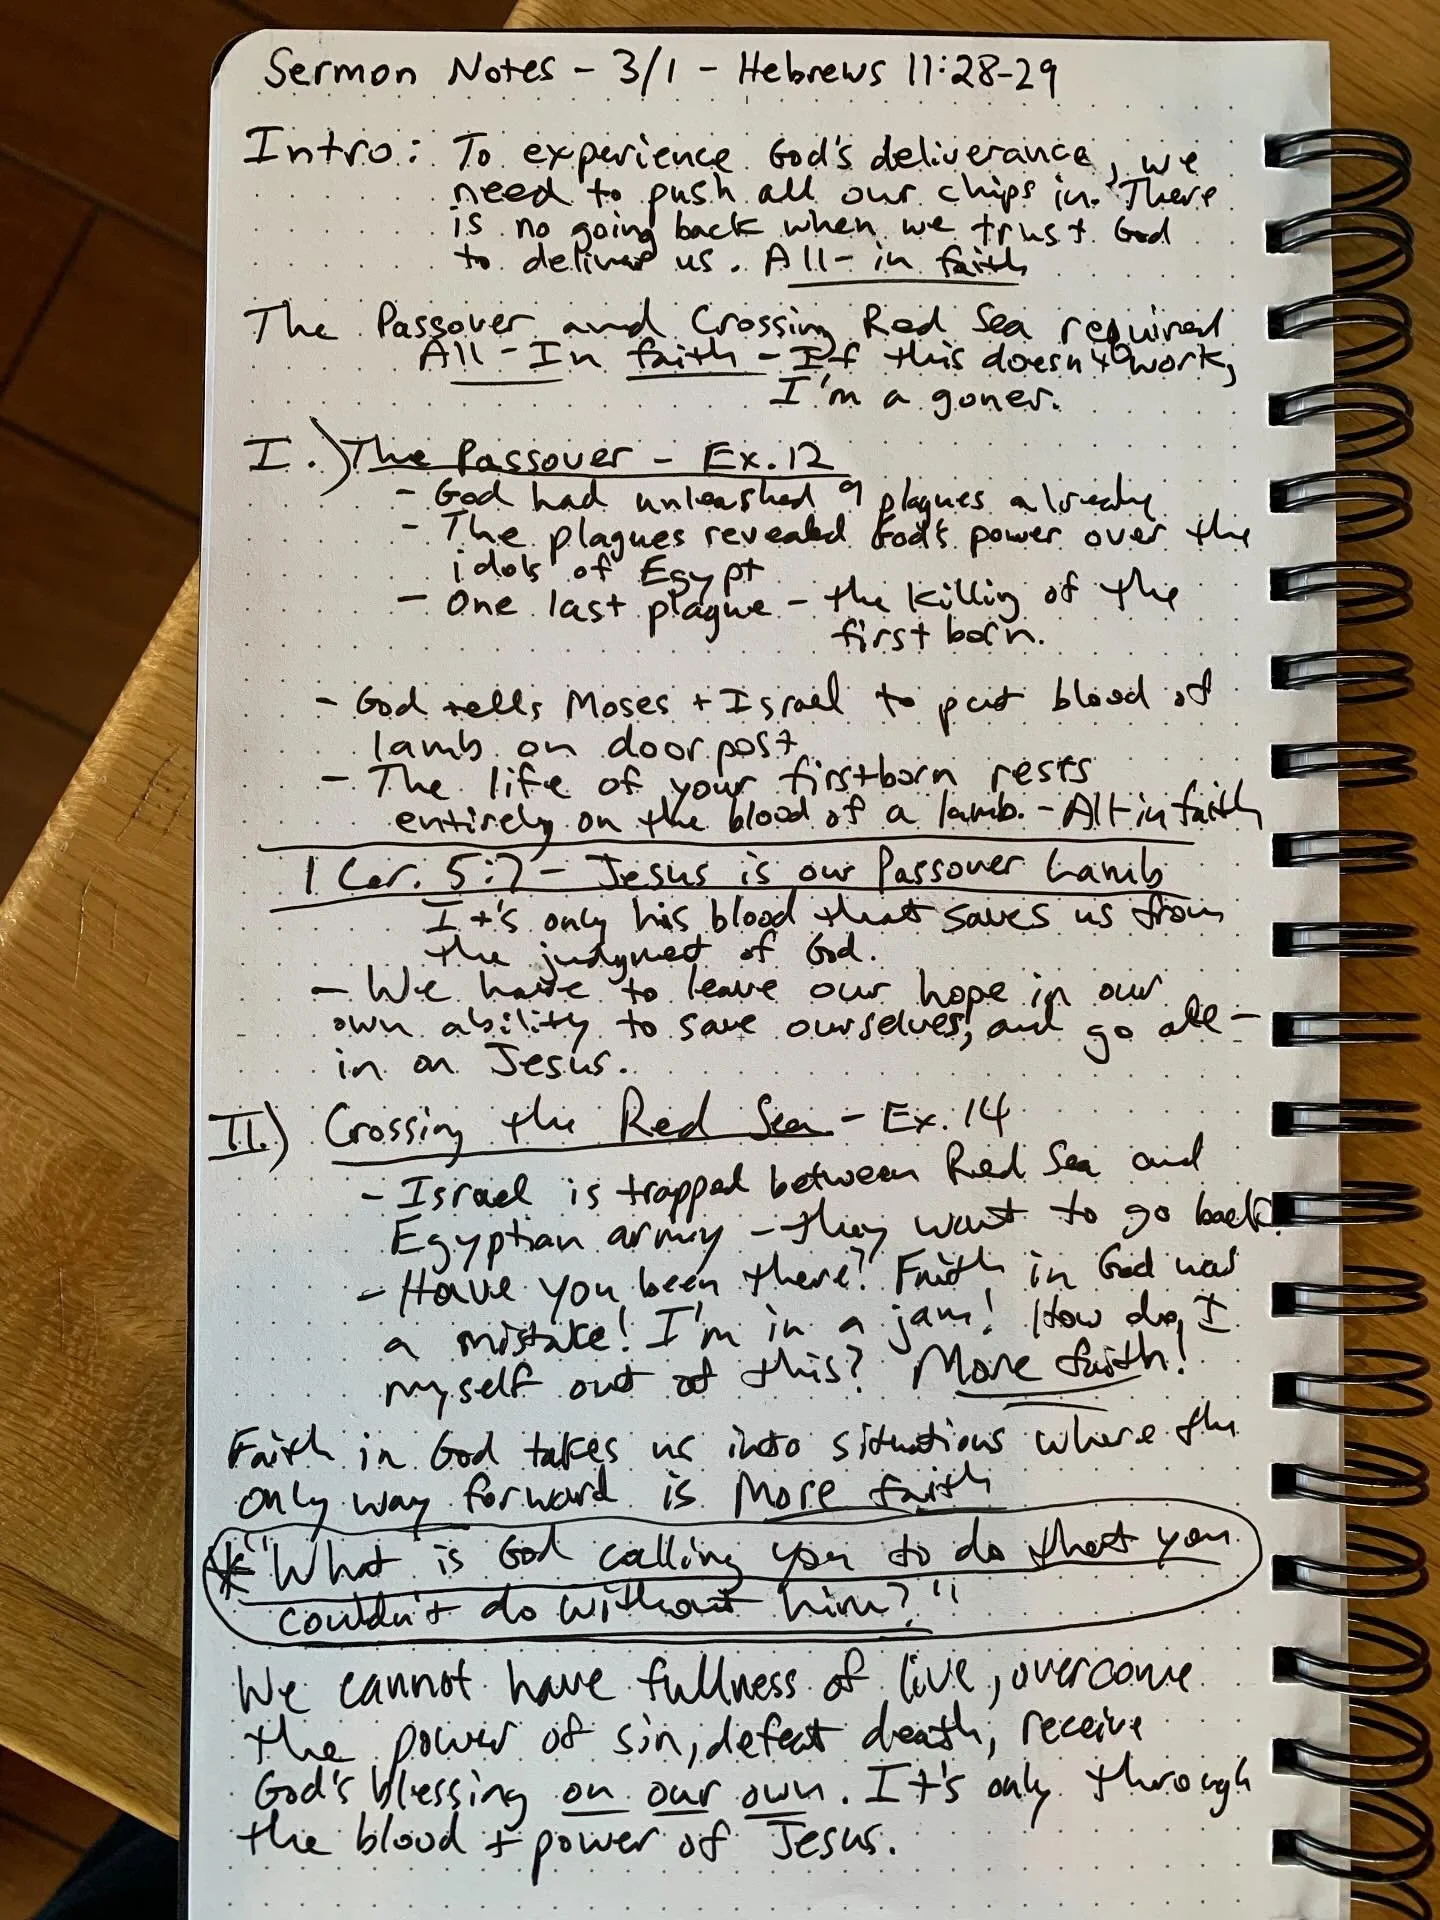 Sermon Notes - 3/1 - Hebrews 11:28-29
Intro: To experience God's deliverance, we
need to push all our chips in. There
is no going back when we trust God
to deliver us. All-in faith
The Passover and Crossing Red Sea required
All-In faith - If this doesn't work,
I'm a goner.
I.) The Passover - Ex. 12
- God had unleashed 9 plagues already
- The plagues revealed God's power over the
idols of Egypt
- One last plague - the killing of the
first born.
- God tells Moses + Israel to put blood of
lamb on door post
- The life of your firstborn rests
entirely on the blood of a lamb. - All-in faith
1 Cor. 5:7 - Jesus is our Passover Lamb
It's only his blood that saves us from
the judgmet of God.
- We have to leave our hope in our
own ability to save ourselves, and go all-
in on Jesus.
II.) Crossing the Red Sea - Ex. 14
- Israel is trapped between Red Sea and
Egyptian army - they want to go back.
- Have you been there? Faith in God was
a mistake! I'm in a jam! How do I
myself out of this? More faith!
Faith in God takes us into situations where the
only way forward is More faith
* "What is God calling you to do that you
couldn't do without him?"
We cannot have fullness of live, overcome
the power of sin, defeat death, receive
God's blessing on our own. It's only through
the blood + power of Jesus.